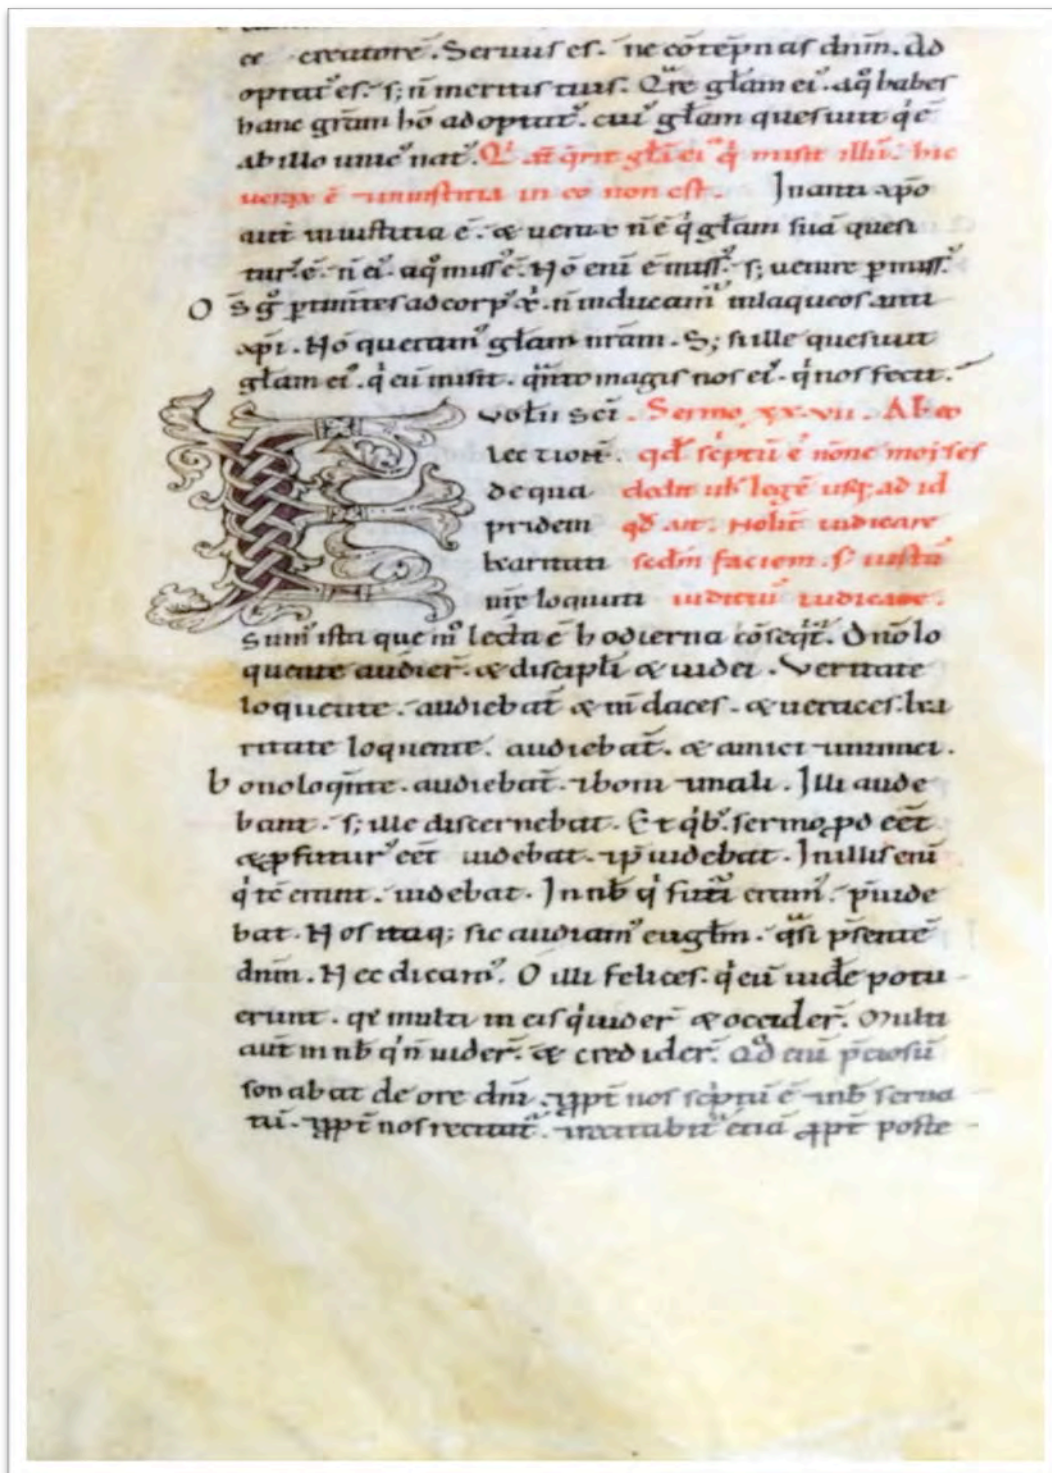 ce creatorē. Seruus es. ne cōtēpnas dn̄m. Ad
optatꝰ es. s; n̄ meritis tuis. Q̄re gl̄am eiꝰ. aq̊ habes
hanc grām hō adoptatꝰ. cuiꝰ gl̄am quesiuit qͥ ē
ab illo unicꝰ natꝰ. Qͥ aū q̄rit gl̄ā eiꝰ qͥ misit illū. hic
uerax ē ⁊ iniusticia in eo non est. In anti xp̄o
aut iniustitia ē. & uerax n̄ ē qͥ gl̄am suā quesi
turꝰ ē. n̄ eiꝰ aq̊ missꝰ ē. Nō enī ē missꝰ. s; uenire p̄missꝰ.
O m̄s gͦ ptinētes ad corpꝰ x̄. n̄ inducamꝰ in laqueos anti
xp̄i. Nō queramꝰ gl̄am nr̄am. S; si ille quesiuit
gl̄am eiꝰ. qͥ eū misit. qn̄to magis nos eiꝰ. qͥ nos fecit.
E uḡl̄ii sc̄i. Sermo xx. vii. Ab eo
lectionē. qd̄ sc̄ptū ē nōne moises
de qua dedit uƀ legē usq; ad id
pridem qd̄ ait. Nolite iudicare
karitati sc̄dm faciem. sꝫ iustū
ur̄e locuti iuditiū iudicate.
sumꝰ ista que mͦ lecta ē hodierna cōseqͣt. Dn̄o lo
quente audier̄. & discipli & iudei. Veritate
loquente. audiebāt & m̄daces. & ueraces. ka
ritate loquente. audiebāt. & amici ⁊ inimici.
b ono loqn̄te. audiebāt. ⁊ boni ⁊ mali. Illi audie
bant. s; ille discernebat. Et qͥbꝰ sermo pd eēt
& pfuturꝰ eēt uidebat. ⁊ p̄uidebat. In illis enī
qͥ tc̄ erant. uidebat. In nob̄ qͥ futuri eramꝰ. p̄uide
bat. Nos itaq; sic audiamꝰ eugl̄m. qͣsi p̄sentē
dn̄m. Nec dicamꝰ. O illi felices. qͥ eū uidē potu
erunt. qr̄ multi in eis qͥ uider̄ & occider̄. Multi
aut in nob̄ qͥ n̄ uider̄. & credider̄. Qd̄ enī p̄ciosū
sonabat de ore dn̄i. ⁊ pp̄t nos sc̄ptū ē ⁊ nob̄ serua
tū. ⁊ pp̄t nos recitatꝰ. ⁊ recitabitꝰ etiā ⁊ pp̄t poste